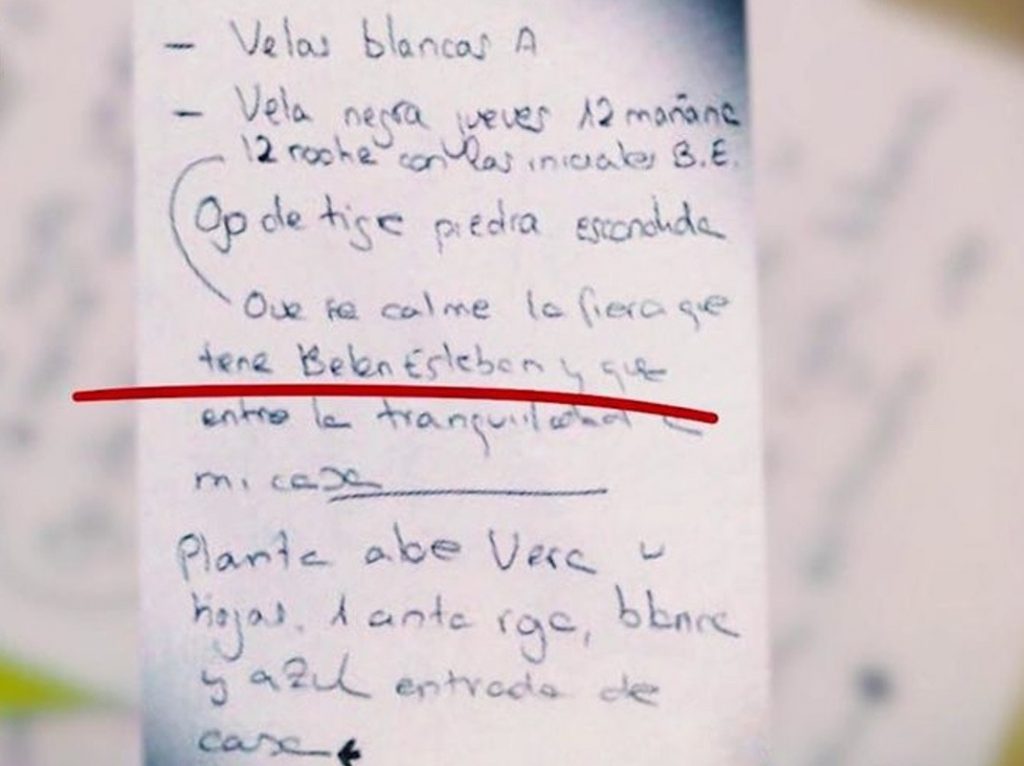 - Velas blancas A
- Vela negra jueves 12 mañana
12 noche con las iniciales B.E.
Ojo de tigre piedra escondida
Que se calme la fiera que
tene Belen Esteban y que
entre la tranquilidad
mi casa
Planta aloe Vera
hojas. 1 cinta roja, blanca
y azul entrada de
casa